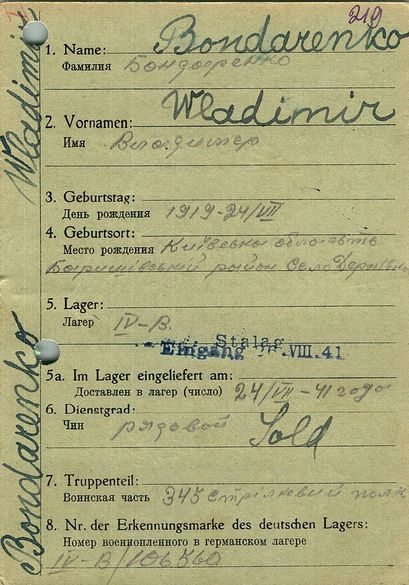 219
1. Name: Bondarenko
Фамилия Бондаренко
2. Vornamen: Wladimir
Имя Владимер
3. Geburtstag:
День рождения 1919-24/VII
4. Geburtsort:
Место рождения Київська область
район Село
5. Lager:
Лагер IV-B.
Stalag
Eingang VIII.41
5a. Im Lager eingeliefert am:
Доставлен в лагер (число) 24/VII-41 года
6. Dienstgrad:
Чин рядовой Sold
7. Truppenteil:
Воинская часть 345 стрілковий полк
8. Nr. der Erkennungsmarke des deutschen Lagers:
Номер военнопленного в германском лагере
IV-B/106560
Wladimir
Bondarenko